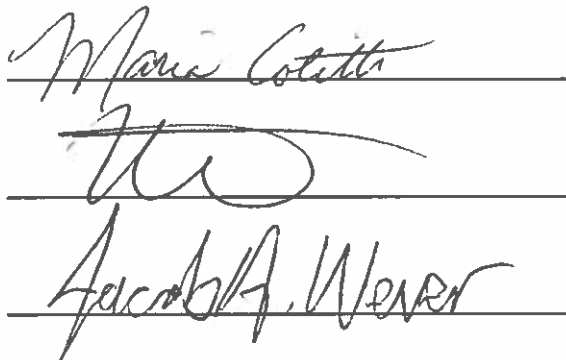 Maria Coletti
Jacob A. Wever